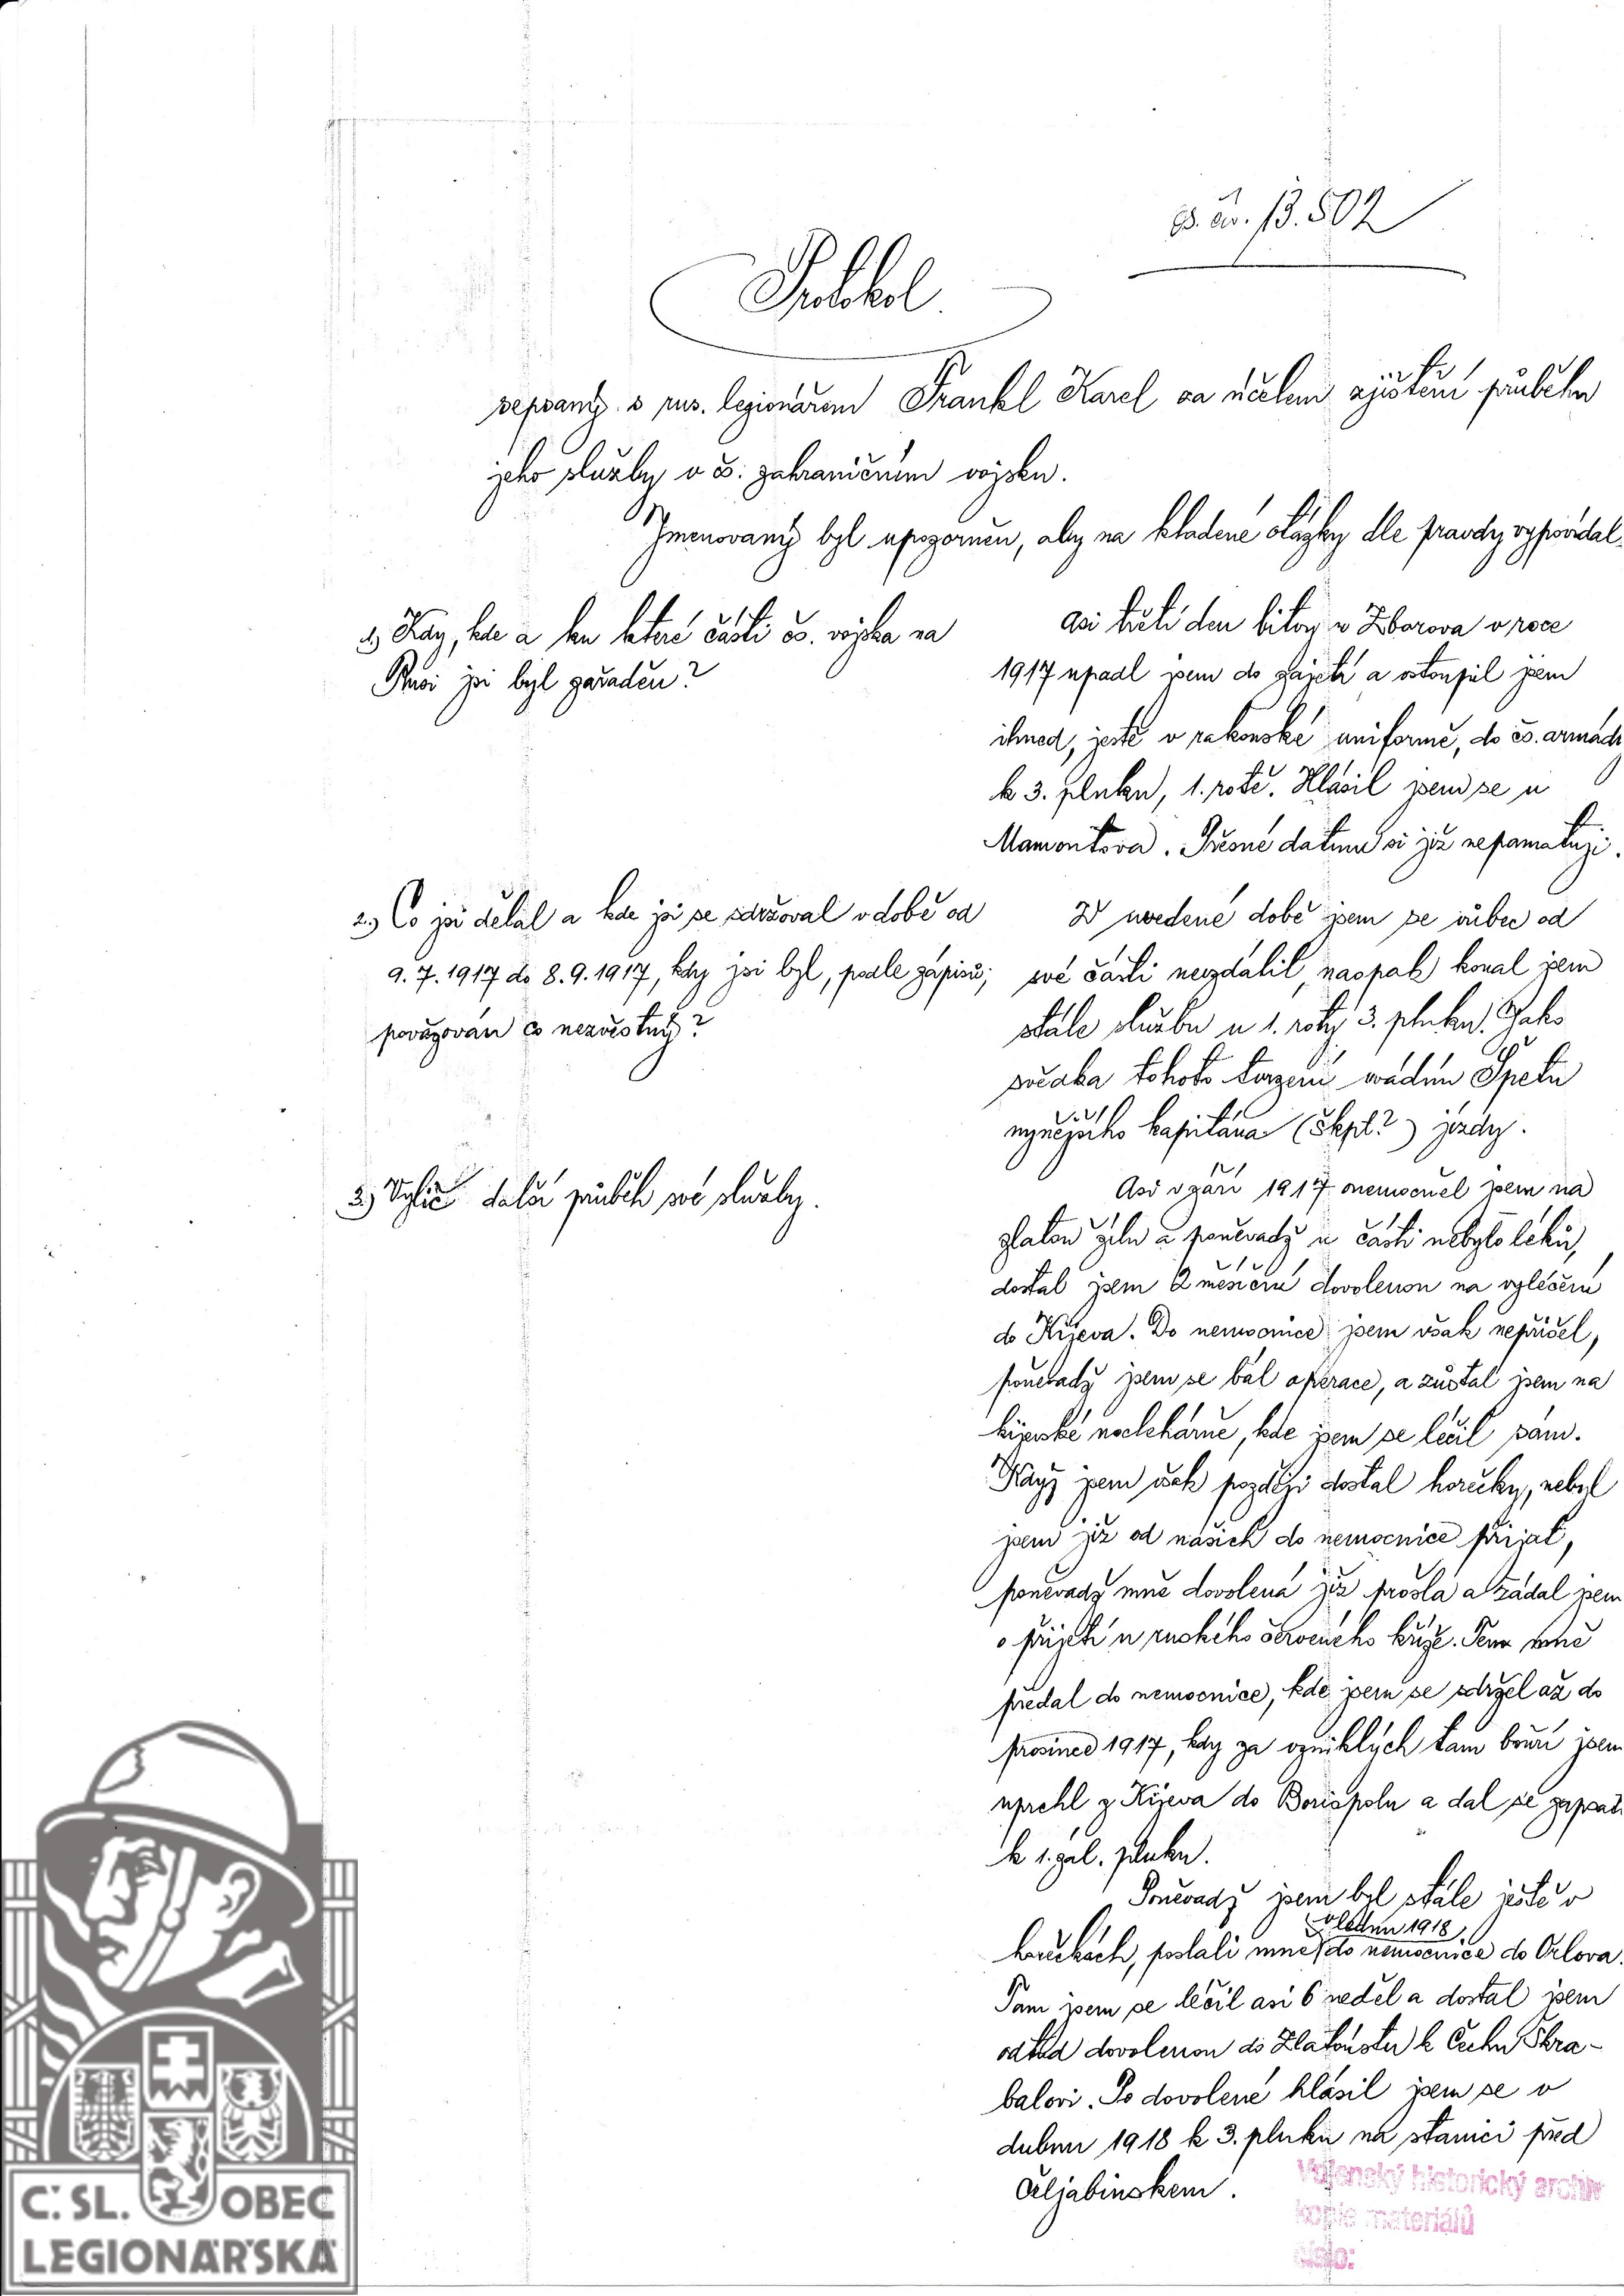 čs. čv. 13.502
Protokol
sepsaný s rus. legionářem Frankl Karel za účelem zjištění průběhu
jeho služby v čs. zahraničním vojsku.
Jmenovaný byl upozorněn, aby na kladené otázky dle pravdy vypovídal.
1.) Kdy, kde a ku které části čs. vojska na
Rusi jsi byl zařaděn?
Asi třetí den bitvy u Zborova v roce
1917 upadl jsem do zajetí a vstoupil jsem
ihned, ještě v rakouské uniformě, do čs. armády
k 3. pluku, 1. rotě. Hlásil jsem se u
Mamontova. Přesné datum si již nepamatuji.
2.) Co jsi dělal a kde jsi se zdržoval v době od
9. 7. 1917 do 8. 9. 1917, kdy jsi byl, podle zápisů,
považován co nezvěstný?
V uvedené době jsem se vůbec od
své části nevzdálil, naopak konal jsem
stále službu u 1. roty 3. pluku. Jako
svědka tohoto tvrzení uvádím Špetu
nynějšího kapitána (škpt.?) jízdy.
3.) Vylíč další průběh své služby.
Asi v září 1917 onemocněl jsem na
zlatou žílu a poněvadž u části nebylo léků,
dostal jsem 2 měsíční dovolenou na vyléčení
do Kijeva. Do nemocnice jsem však nepřišel,
poněvadž jsem se bál operace, a zůstal jsem na
kijevské nocležárně, kde jsem se léčil sám.
Když jsem však později dostal horečky, nebyl
jsem již od našich do nemocnice přijat,
poněvadž mně dovolená již prošla a žádal jsem
o přijetí u ruského Červeného kříže. Ten mne
předal do nemocnice, kde jsem se zdržel až do
prosince 1917, kdy za vzniklých tam bouří jsem
uprchl z Kijeva do Borispolu a dal se zapsati
k 1. zál. pluku.
Poněvadž jsem byl stále ještě v
v lednu 1918
horečkách, poslali mne do nemocnice do Orlova.
Tam jsem se léčil asi 6 neděl a dostal jsem
odtud dovolenou do Zlatoustu k Čechu Škra-
balovi. Po dovolené hlásil jsem se v
dubnu 1918 k 3. pluku na stanici před
Čeljabinskem.
Vojenský historický archiv
kopie materiálů
číslo:
Č. SL. OBEC
LEGIONÁŘSKÁ